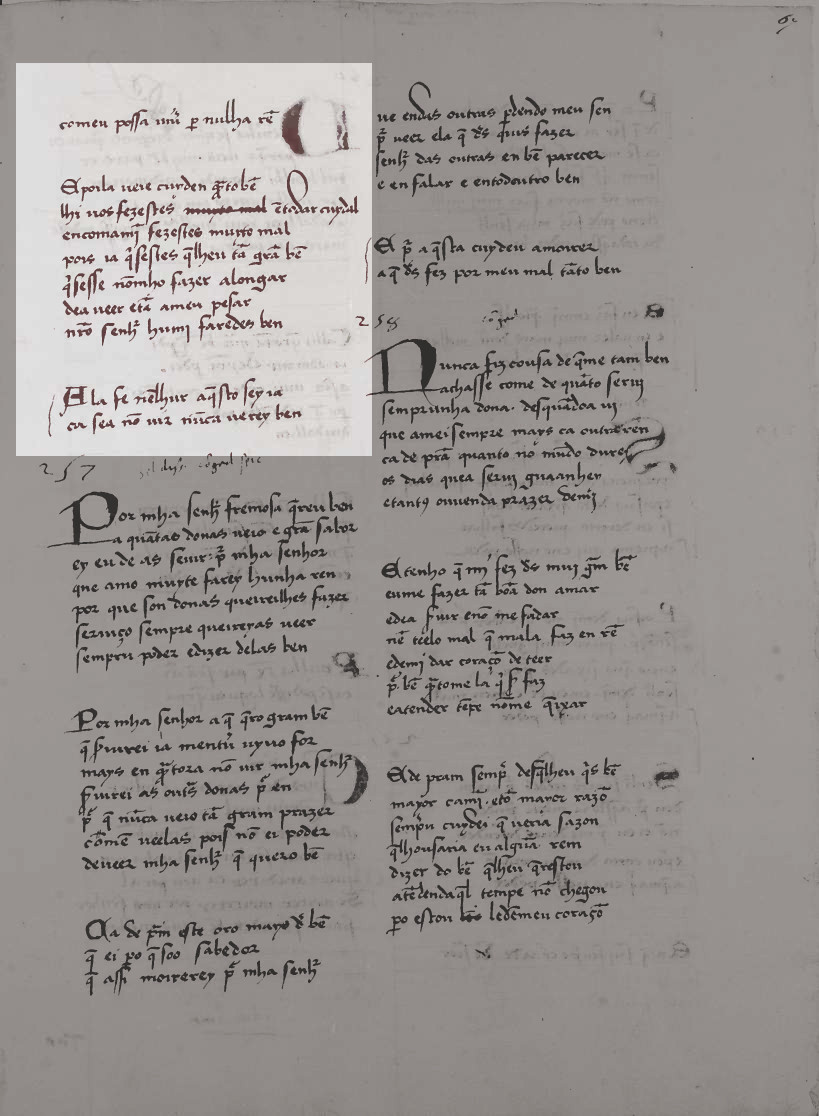 comeu possa uiũ p̱ nulha rẽ
E poila ueie cuyden q̃ to bẽ
lhi uos fezestes muyto mal ẽtodar cuydal
encomamj̃ fezestes muyto mal
pois ia q̃ sestes q̃lheu tã grã bẽ
q̃ sesse nõmho fazer alongar
dea ueer etã ameu pesar
nr̃o senhr̃ humi faredes ben
E la fe nẽlhur aq̃sto sey ia
ca sea nõ uir nũca uerey ben
257
Por mha senhr̃ fremosa q̃reu ben
a quãtas donas ueio e grã sabor
ey eu de as seuir p̃ mha senhor
que amo muyte farey hunha ren
por que son donas queireilhes fazer
seruiço sempre queireyas ueer
sempru poder edizer delas ben
Por mha senhor a q̃ q̃ro gram bẽ
q̃ s̃uirei ia mentũ uyuo for
mays en q̃tora nõ uir mha senhr̃
s̃uirei as outs̃ donas p̃ en
p̃ q̃ nũca ueio tã gram prazer
cõmẽ ueelas pois nõ ei poder
deueer mha senhr̃ q̃ quero bẽ
Ca de p̃m este oro mayor d̃ bẽ
q̃ ei p̱o q̃ soo sabedor
q̃ assy moirerey p̃ mha senhr̃
ue endas outras p̱dendo meu sen
p̃ ueer ela q̃ ds̃ q̃uis fazer
senhr̃ das outras en bẽ parecer
e en falar e entodoutro ben
E p̃ a q̃sta cuydeu amoirer
a q̃ ds̃ fez por meu mal tãto ben
258
Nunca fiz cousa de q̃me tam ben
achasse come de quãto serui
semprunha dona desquãdoa ui
que amei sempre mays ca outra ren
ca de prã quanto no mũdo durey
os dias quea serui guaanhey
etantꝯ ouuenda prazer demj̃
E tenho q̃ mi fez ds̃ mui gr̃m bẽ
eume fazer tã bõa don amar
edea s̃uir enõ me fadar
nẽ teelo mal q̃ mala faz en rẽ
edemi dar coraçõ de teer
p̃ bẽ q̃tome la q̃ s̃ faz
eatender tẽpe nõme q̃ixar
E de pram semp̃ desq̃lheu q̃s bẽ
mayor cami etõ mayor razõ
semp̃u cuydei q̃ ueria sazon
q̃lhousaria eu algũa rem
dizer do bẽ q̃lheu q̃restou
atẽdendaq̃l tempe nõ chegou
p̱o estou ledẽmeu coraçõ